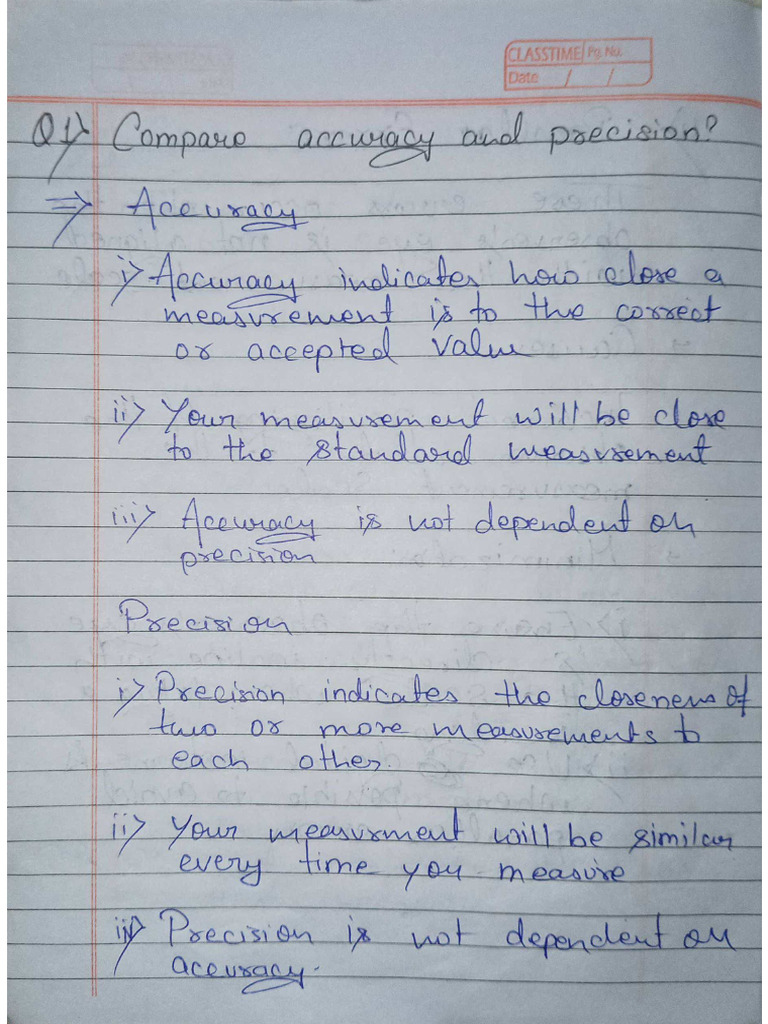 CLASSTIME Pg. No.
Date / /
Q1> Compare accuracy and precision?
⇒ Accuracy
i> Accuracy indicates how close a
measurement is to the correct
or accepted value
ii> Your measurement will be close
to the standard measurement
iii> Accuracy is not dependent on
precision
Precision
i> Precision indicates the closeness of
two or more measurements to
each other.
ii> Your measurment will be similar
every time you measure
iii> Precision is not dependent on
accuracy.